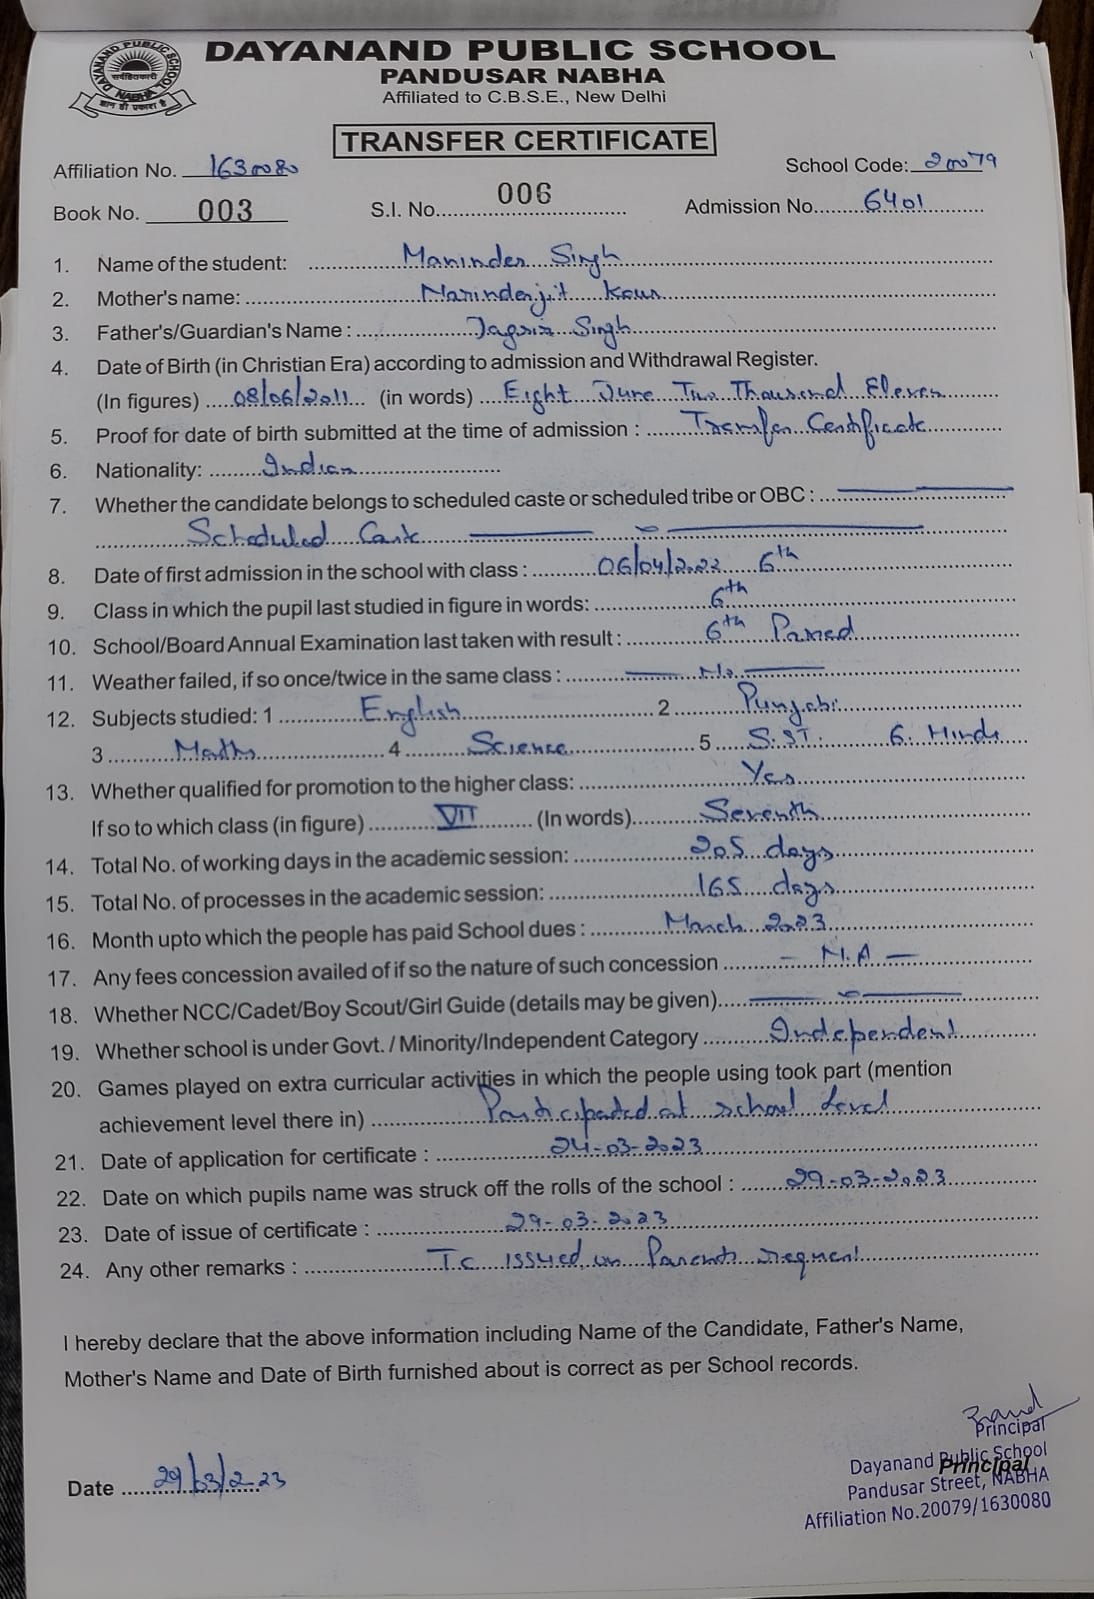 DAYANAND PUBLIC SCHOOL
PANDUSAR NABHA
Affiliated to C.B.S.E., New Delhi
DAYANAND PUBLIC SCHOOL
NABHA
ज्ञान ही प्रकाश है
TRANSFER CERTIFICATE
Affiliation No. 1630080 School Code: 20079
Book No. 003 S.I. No. 006 Admission No. 6401
1. Name of the student: Maninder Singh
2. Mother's name: Narinderjit Kour
3. Father's/Guardian's Name : Singh
4. Date of Birth (in Christian Era) according to admission and Withdrawal Register.
(In figures) 08/06/2011 (in words) Eight June Two Thousand Eleven
5. Proof for date of birth submitted at the time of admission : Transfer Certificate
6. Nationality: Indian
7. Whether the candidate belongs to scheduled caste or scheduled tribe or OBC :
Scheduled Caste
8. Date of first admission in the school with class : 06/04/2022 6th
9. Class in which the pupil last studied in figure in words: 6th
10. School/Board Annual Examination last taken with result : 6th Passed
11. Weather failed, if so once/twice in the same class : No
12. Subjects studied: 1 English 2 Punjabi
3 Maths 4 Science 5 S.ST. 6. Hindi
13. Whether qualified for promotion to the higher class: Yes
If so to which class (in figure) VII (In words) Seventh
14. Total No. of working days in the academic session: 205 days
15. Total No. of processes in the academic session: 165 days
16. Month upto which the people has paid School dues : March 2023
17. Any fees concession availed of if so the nature of such concession - N.A -
18. Whether NCC/Cadet/Boy Scout/Girl Guide (details may be given)
19. Whether school is under Govt. / Minority/Independent Category Independent
20. Games played on extra curricular activities in which the people using took part (mention
achievement level there in) Participated at school level
21. Date of application for certificate : 24-03-2023
22. Date on which pupils name was struck off the rolls of the school : 29-03-2023
23. Date of issue of certificate : 29-03-2023
24. Any other remarks : TC issued on Parents request
I hereby declare that the above information including Name of the Candidate, Father's Name,
Mother's Name and Date of Birth furnished about is correct as per School records.
Principal
Dayanand Public School
Principal
Pandusar Street, NABHA
Affiliation No.20079/1630080
Date 29/03/2023